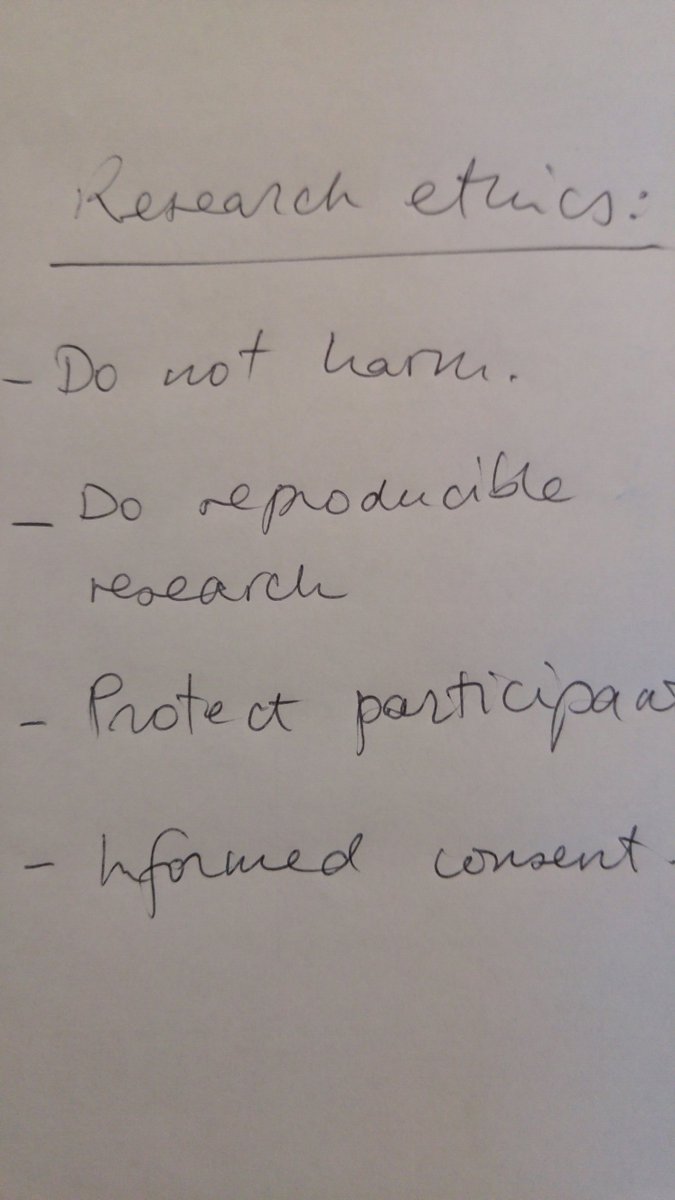 Research ethics:
- Do not harm.
- Do reproducible
research
- Protect
- Informed consent.